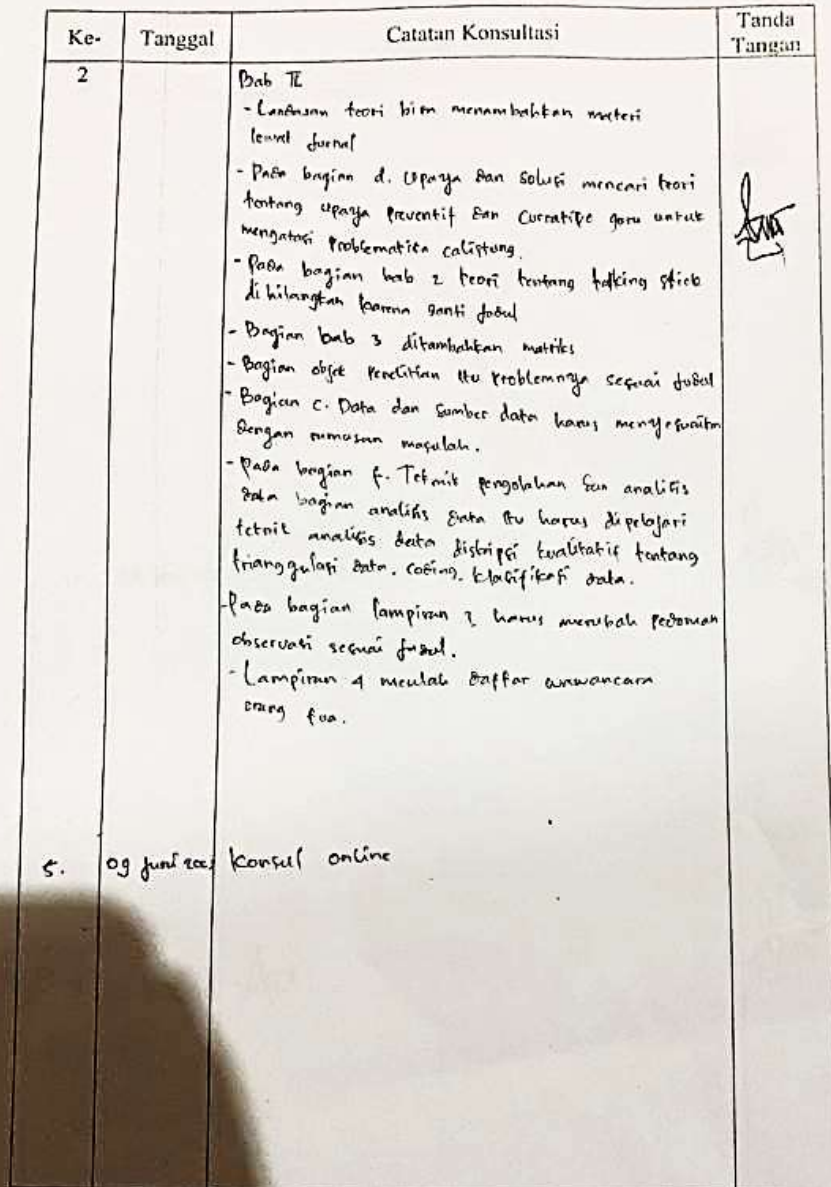 Ke- Tanggal Catatan Konsultasi Tanda Tangan
2
Bab II
- Landasan teori bisa menambahkan materi
lewat jurnal
- Pada bagian d. Upaya dan solusi mencari teori
tentang upaya preventif dan currative guru untuk
mengatasi problematika calistung.
- Pada bagian bab 2 teori tentang talking stick
di hilangkan karena ganti judul
- Bagian bab 3 ditambahkan matriks
- Bagian objek penelitian itu problemnya sesuai judul
- Bagian c. Data dan sumber data harus menyesuaikan
dengan rumusan masalah.
- Pada bagian f. Teknik pengolahan dan analisis
data bagian analisis data itu harus dipelajari
teknik analisis data diskripsi kualitatif tentang
trianggulasi data, coding, klasifikasi data.
- Pada bagian lampiran harus merubah pedoman
observasi sesuai judul.
- Lampiran 4 daftar wawancara
orang tua.
5. 09 Juni Konsul online